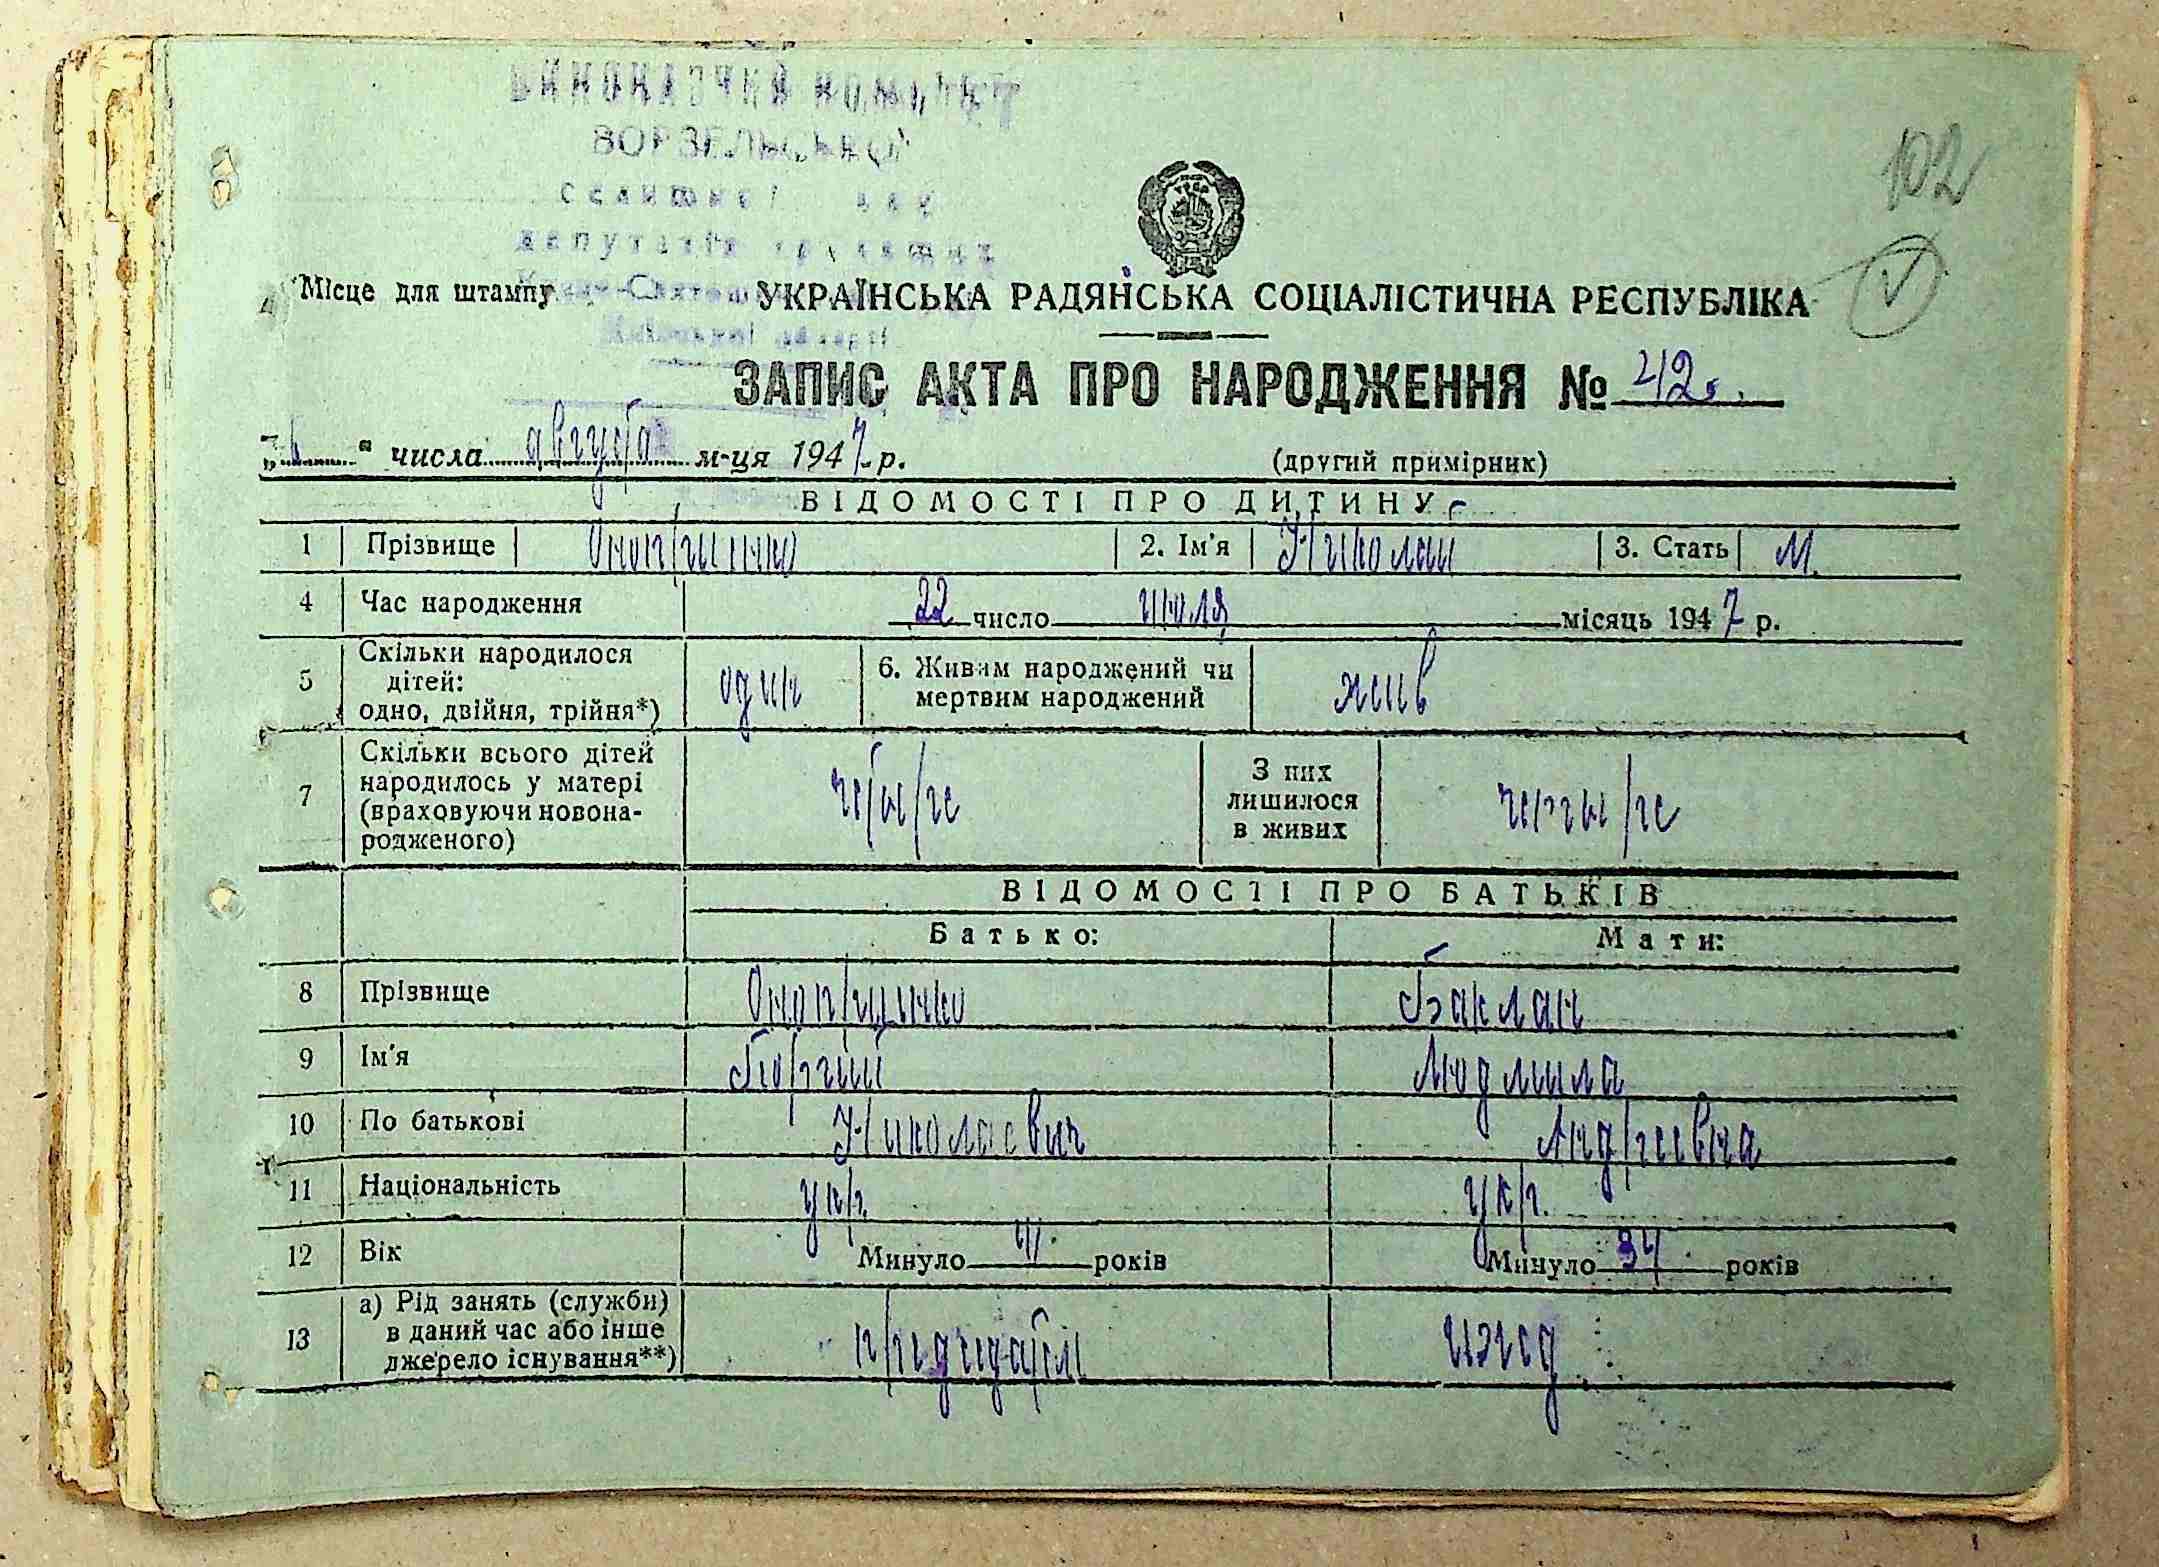 ВИКОНАВЧИЙ КОМІТЕТ
ВОРЗЕЛЬСЬКОЇ
селищної
депутатів трудящих
102
Місце для штампу УКРАЇНСЬКА РАДЯНСЬКА СОЦІАЛІСТИЧНА РЕСПУБЛІКА
Київської області
ЗАПИС АКТА ПРО НАРОДЖЕННЯ № 42
„6“ числа августа м-ця 1947 р. (другий примірник)
ВІДОМОСТІ ПРО ДИТИНУ
1 Прізвище Оноприенко 2. Ім'я Николай 3. Стать М.
4 Час народження 22 число июля місяць 1947 р.
5 Скільки народилося дітей: одно, двійня, трійня*) один 6. Живим народжений чи мертвим народжений жив
7 Скільки всього дітей народилось у матері (враховуючи новонародженого) четыре З них лишилося в живих четыре
ВІДОМОСТІ ПРО БАТЬКІВ
Батько: Мати:
8 Прізвище Оноприенко Баклан
9 Ім'я Георгий Людмила
10 По батькові Николаевич Андреевна
11 Національність укр. укр.
12 Вік Минуло 41 років Минуло 34 років
13 а) Рід занять (служби) в даний час або інше джерело існування**) ижд